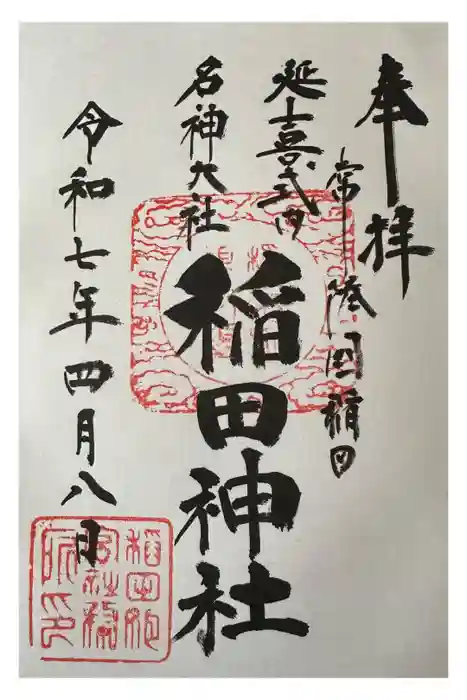 奉拝
常陸国稲田
延喜式内
名神大社
稲田神社
令和七年四月八日